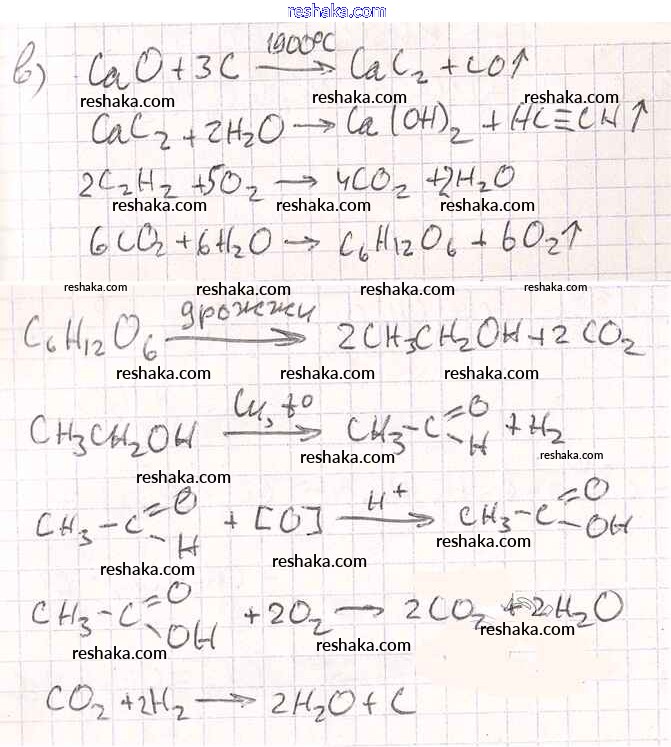 reshaka.com
в) CaO + 3C 1900°C → CaC₂ + CO↑
reshaka.com reshaka.com reshaka.com
CaC₂ + 2H₂O → Ca(OH)₂ + HC≡CH↑
reshaka.com reshaka.com
2C₂H₂ + 5O₂ → 4CO₂ + 2H₂O
reshaka.com reshaka.com
6CO₂ + 6H₂O → C₆H₁₂O₆ + 6O₂↑
reshaka.com reshaka.com reshaka.com
reshaka.com reshaka.com reshaka.com reshaka.com
C₆H₁₂O₆ дрожжи → 2CH₃CH₂OH + 2CO₂
reshaka.com reshaka.com reshaka.com
CH₃CH₂OH Cu, t° → CH₃-C(=O)-H + H₂
reshaka.com reshaka.com reshaka.com
CH₃-C(=O)-H + [O] H⁺ → CH₃-C(=O)-OH
reshaka.com
reshaka.com reshaka.com
CH₃-C(=O)-OH + 2O₂ → 2CO₂ + 2H₂O
reshaka.com reshaka.com reshaka.com
CO₂ + 2H₂ → 2H₂O + C